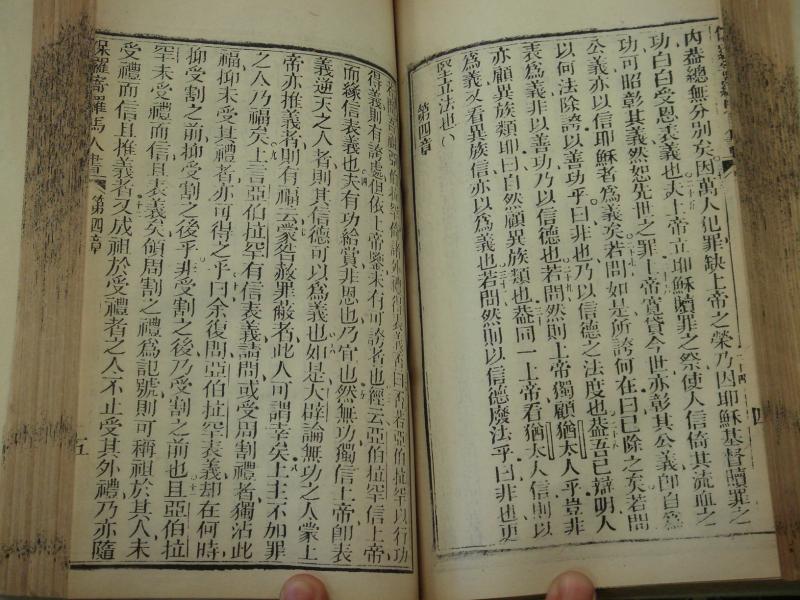 內蓋總無分別矣因萬人犯罪缺上帝之榮乃因耶穌基督贖罪之
功白白受恩表義也夫上帝立耶穌贖罪之祭使人信倚其流血之
功可昭彰其義然恕先世之罪上帝寬貸今世亦彰其公義卽自爲
公義亦以信耶穌者爲義矣若問如是所誇何在曰已除之矣若問
以何法除誇以善功乎曰非也乃以信德之法度也蓋吾已辯明人
表爲義非以善功乃以信德也若問然則上帝獨顧猶太人乎豈非
亦顧異族類卽曰自然顧異族類也蓋同一上帝看猶太人信則以
爲義又看異族信亦以爲義也若問然則以信德廢法乎曰非也更
堅立法也
第四章
四
外禮得表義否曰否若亞伯拉罕以行功
得義則有誇處但依上帝鑒未有可誇者也經云亞伯拉罕信上帝
而緣信表義也夫有功給賞非恩也乃宜也然無功獨信上帝卽表
義逆天之人者則其信德可以爲義也如是大辟論無功之人蒙上
帝亦推義者則有福云蒙咎赦罪蔽者此人可謂幸矣上主不加罪
之人乃福矣上言亞伯拉罕有信表義請問或受周割禮者獨沾此
福抑未受其禮者亦可得之乎曰余復問亞伯拉罕表義却在何時
抑受割之前抑受割之後乎非受割之後乃受割之前也且亞伯拉
罕未受禮而信且表義矣領周割之禮爲記號則可稱祖於其人未
受禮而信且推義者又成祖於受禮者之人不止受其外禮乃亦隨
保羅寄羅馬人書 第四章 五